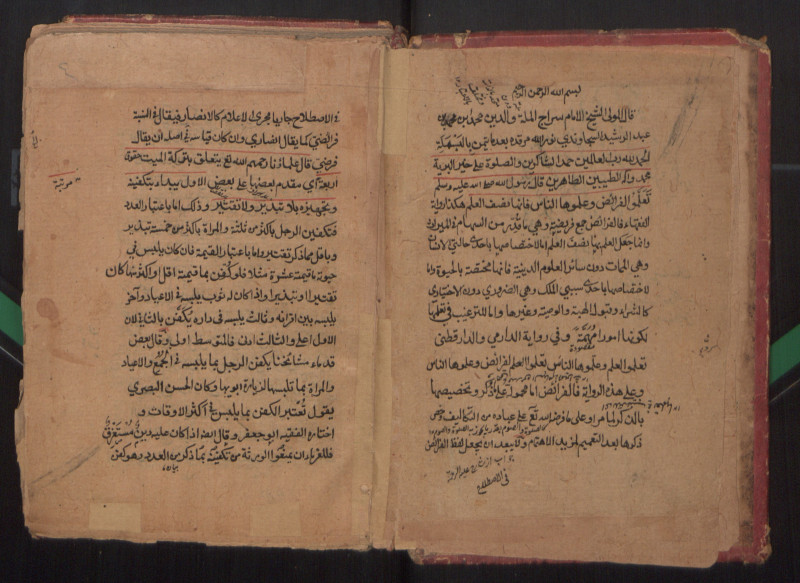 بسم الله الرحمن الرحيم
قال المولى الشيخ الامام سراج الملة والدين محمد بن محمد بن
عبد الرشيد السجاوندي نور الله مرقده بعد ما تيمن بالبسملة
الحمد لله رب العالمين حمد الشاكرين والصلوة على خير البرية
محمد وآله الطيبين الطاهرين قال رسول الله صلى الله عليه وسلم
تعلموا الفرائض وعلموها الناس فانها نصف العلم هكذا رواية
الفقهاء فالفرائض جمع فريضة وهي ما قدر من السهام في الميراث
وانما جعل العلم بها نصف العلم اما لاختصاصها باحدى حالتي الانسان
وهي الممات دون سائر العلوم الدينية فانها مختصة بالحيوة واما
لاختصاصها باحد سببي الملك وهي الضروري دون الاختياري
كالشراء وقبول الهبة والوصية وغيرها واما للترغيب في تعلمها
لكونها امورا مهمة وفي رواية الدارمي والدارقطني
تعلموا العلم وعلموها الناس تعلموا الفرائض وعلموها الناس
وعلى هذه الرواية فالفرائض اما محمولة على ما ذكر وتخصيصها
بالذكر لما مر او على ما فرضه الله تع على عباده من التكاليف فخص
ذكرها بعد التعميم لمزيد الاهتمام ولا يبعد ان يجعل لفظ الفرائض
في الاصطلاح
في الاصطلاح جاريا مجرى الاعلام كالانصار فيقال في النسبة
فرائضي كما يقال انصاري وان كان قياسه في اصله ان يقال
فرضي قال علماؤنا رحمهم الله تع يتعلق بتركة الميت حقوق
اربعة اي مقدم بعضها على بعض الاول يبداء بتكفينه
مرتبة
وتجهيزه بلا تبذير ولا تقتير وذلك اما باعتبار العدد
فتكفين الرجل باكثر من ثلثة والمراة باكثر من خمسة تبذير
وباقل مما ذكر تقتير واما باعتبار القيمة فان كان يلبس في
حيوته ما قيمته عشرة مثلا فلو كفن بما قيمته اقل او اكثر منها كان
تقتيرا او تبذيرا واذا كان له ثوب يلبسه في الاعياد وآخر
يلبسه بين اقرانه وثالث يلبسه في داره يكفن بالثاني لان
الاول اعلى والثالث ادنى فالمتوسط اولى وقال بعض
قدماء مشائخنا يكفن الرجل بما يلبسه في الجمع والاعياد
والمراة بما تلبسها لزيارة ابويها وكان الحسن البصري
يقول تعتبر الكفن بما يلبس في اكثر الاوقات و
اختاره الفقيه ابو جعفر وقال ايضا اذا كان عليه دين مستغرق
فللغرماء ان يمنعوا الورثة من تكفينه بما ذكر من العدد وهو كفن